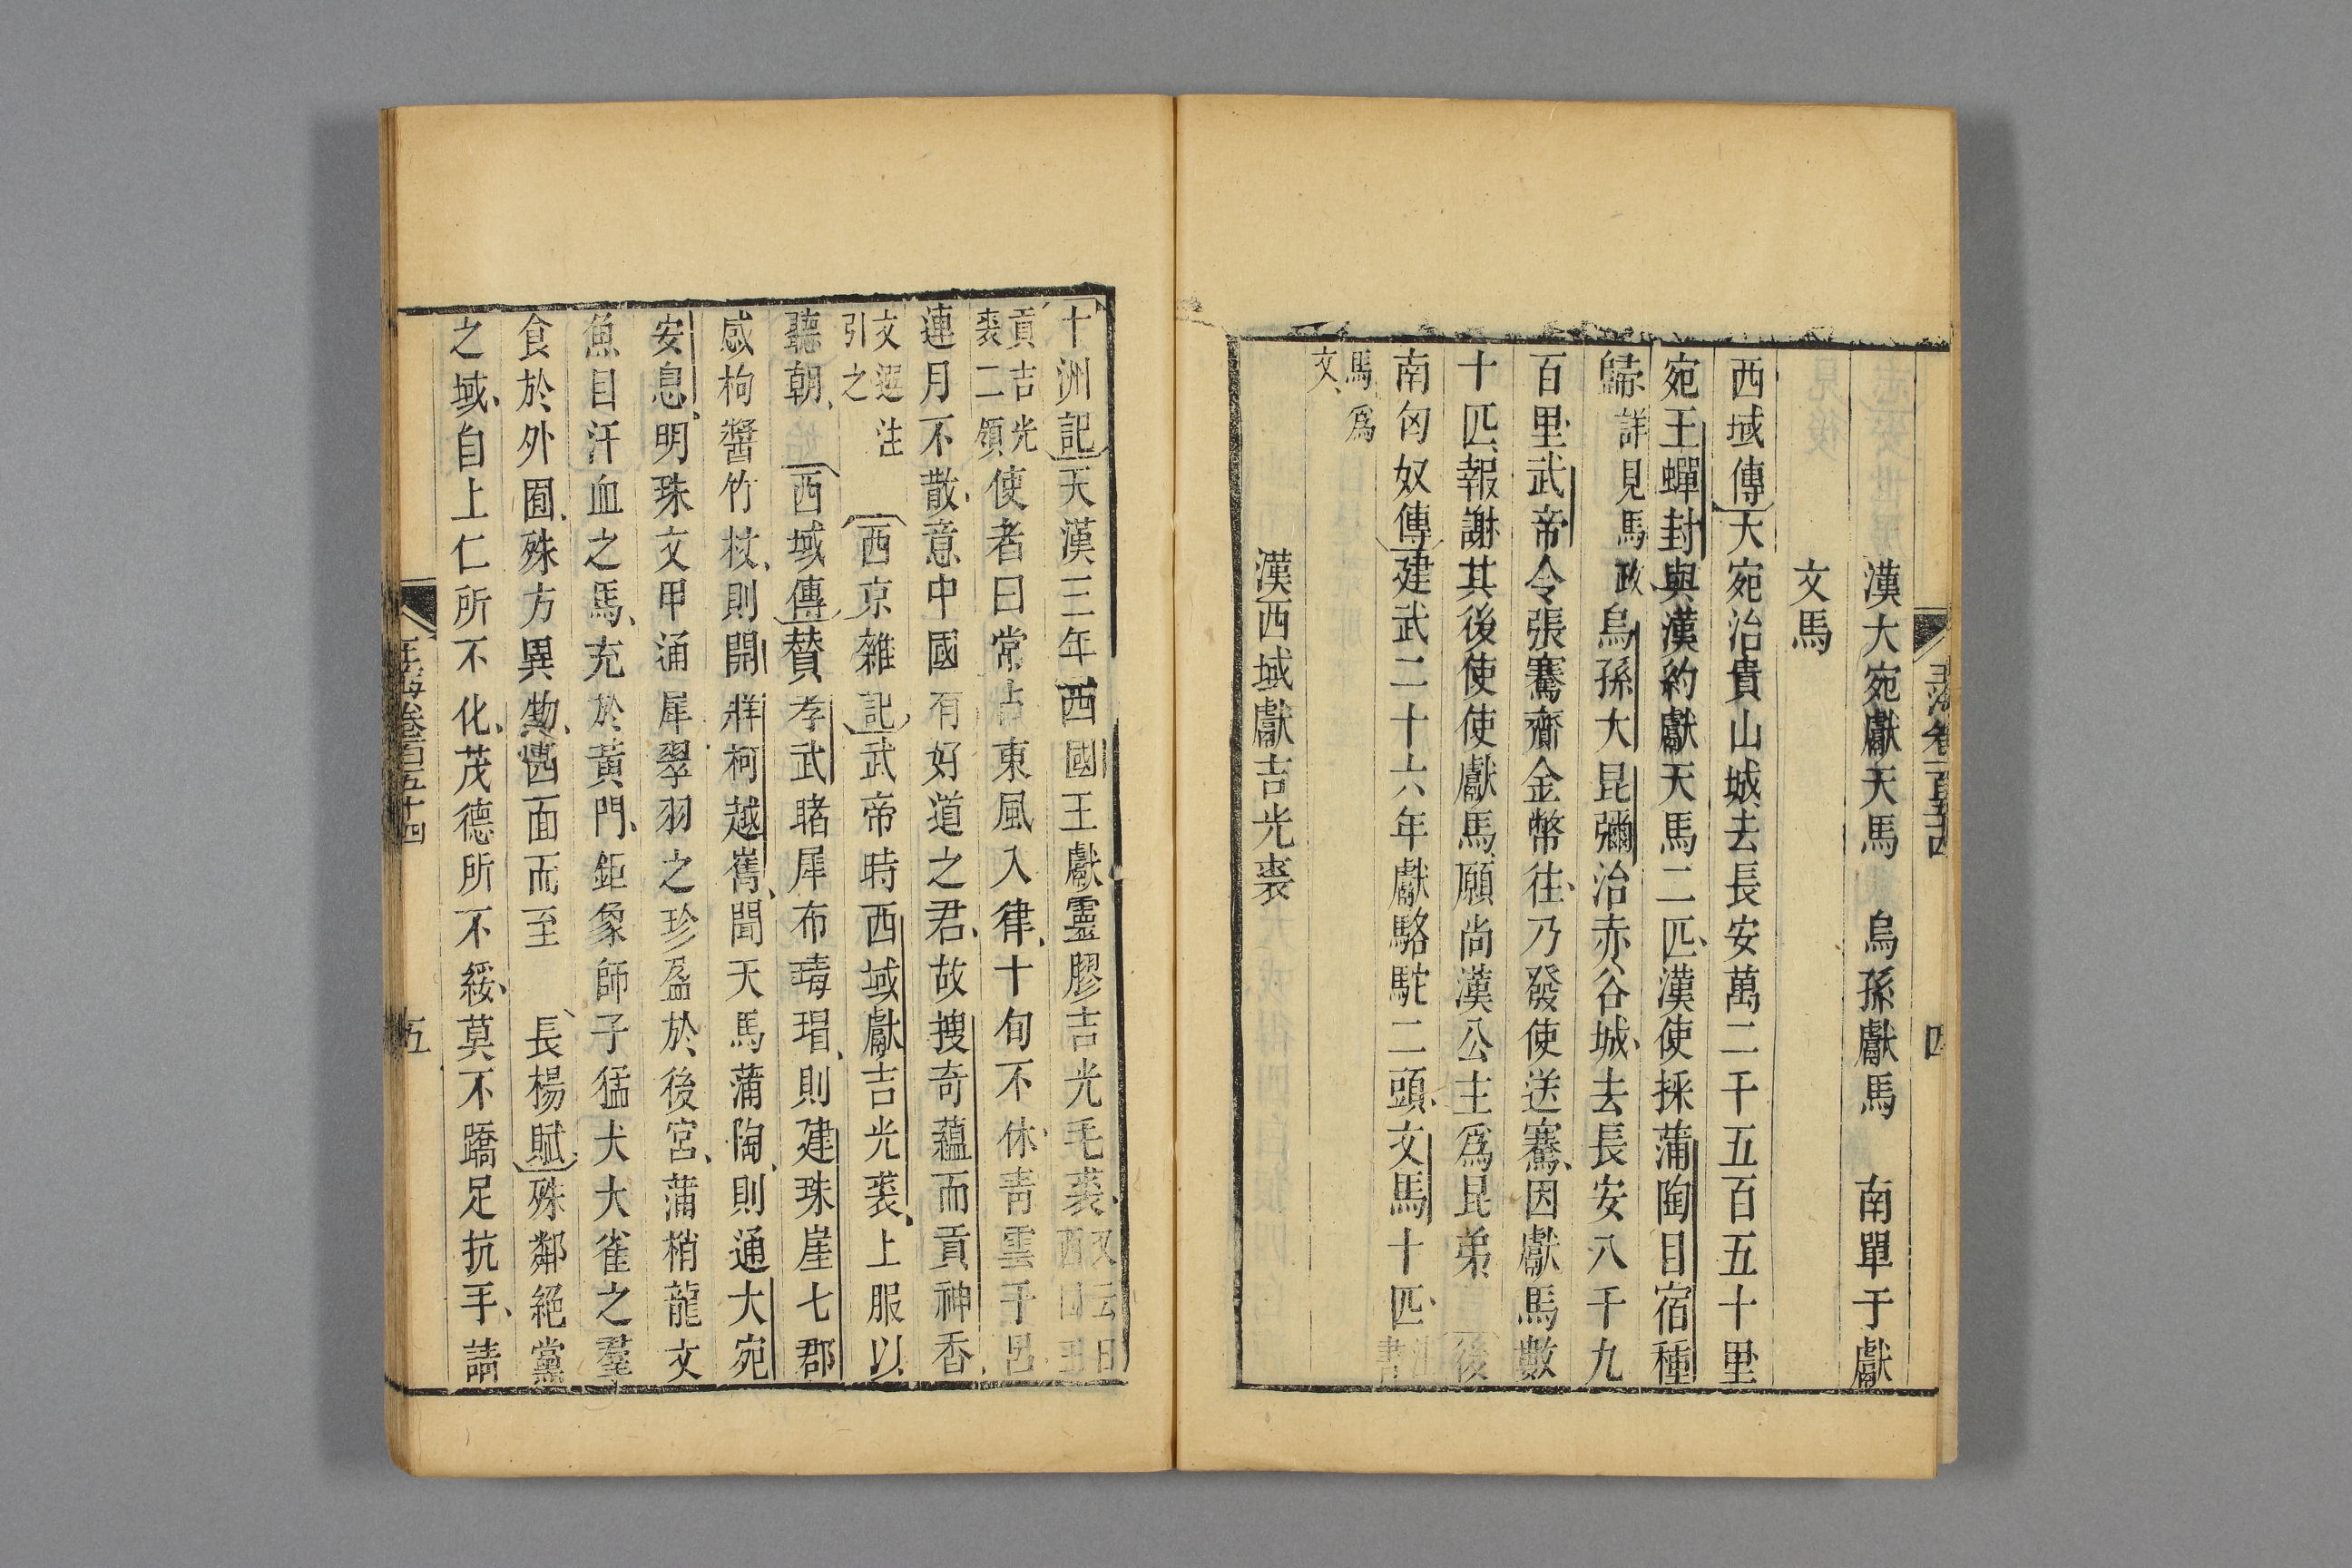 玉海卷一百五十四　四
漢大宛獻天馬　烏孫獻馬　南單于獻
文馬
西域傳天宛治貴山城去長安萬二千五百五十里
宛王蟬封與漢約獻天馬二匹漢使採蒲陶目宿種
歸詳見馬政烏孫大昆彌治赤谷城去長安八千九
百里武帝令張騫齎金幣往乃發使送騫因獻馬數
十匹報謝其後使使獻馬願尚漢公主為昆弟後
南匈奴傳建武二十六年獻駱駝二頭文馬十匹
馬為
文
漢西域獻吉光裘
十洲記天漢三年西國王獻靈膠吉光毛裘又云西國王
貢吉光
裘二領使者曰常占東風入律十旬不休青雲干呂
連月不散意中國有好道之君故搜奇蘊而貢神香
文選注
引之西京雜記武帝時西域獻吉光裘上服以
聽朝西域傳贊孝武睹犀布瑇瑁則建珠崖七郡
感枸醬竹杖則開牂柯越嶲聞天馬蒲陶則通大宛
安息明珠文甲通犀翠羽之珍盈於後宮蒲梢龍文
魚目汗血之馬充於黃門鉅象師子猛犬大雀之羣
食於外囿殊方異物四面而至　長楊賦殊鄰絕黨
之域自上仁所不化茂德所不綏莫不蹻足抗手請
玉海卷一百五十四　五